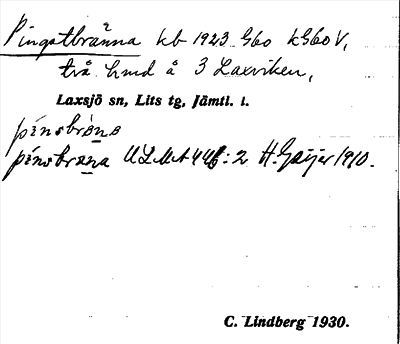 Pingstbränna kb 1923 S60 kS60V,
två hmd å 3 Laxviken,
Laxsjö sn, Lits tg, Jämtl. l.
pínsbrèna
pínsbrèna ULMA 446:2 H. Geijer 1910.
C. Lindberg 1930.